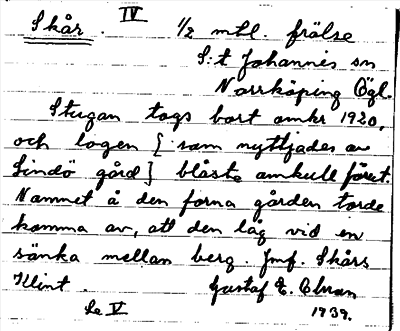 IV
Skår. 1/2 mtl. frälse
S:t Johannis sn
Norrköping Ögl.
Stugan togs bort omkr 1920,
och logen [ som nyttjades av
Lindö gård] blåste omkull förut.
Namnet å den forna gården torde
komma av, att den låg vid en
sänka mellan berg. Jmf. Skårs
Klint. Gustaf E. Elman
Se V 1939.